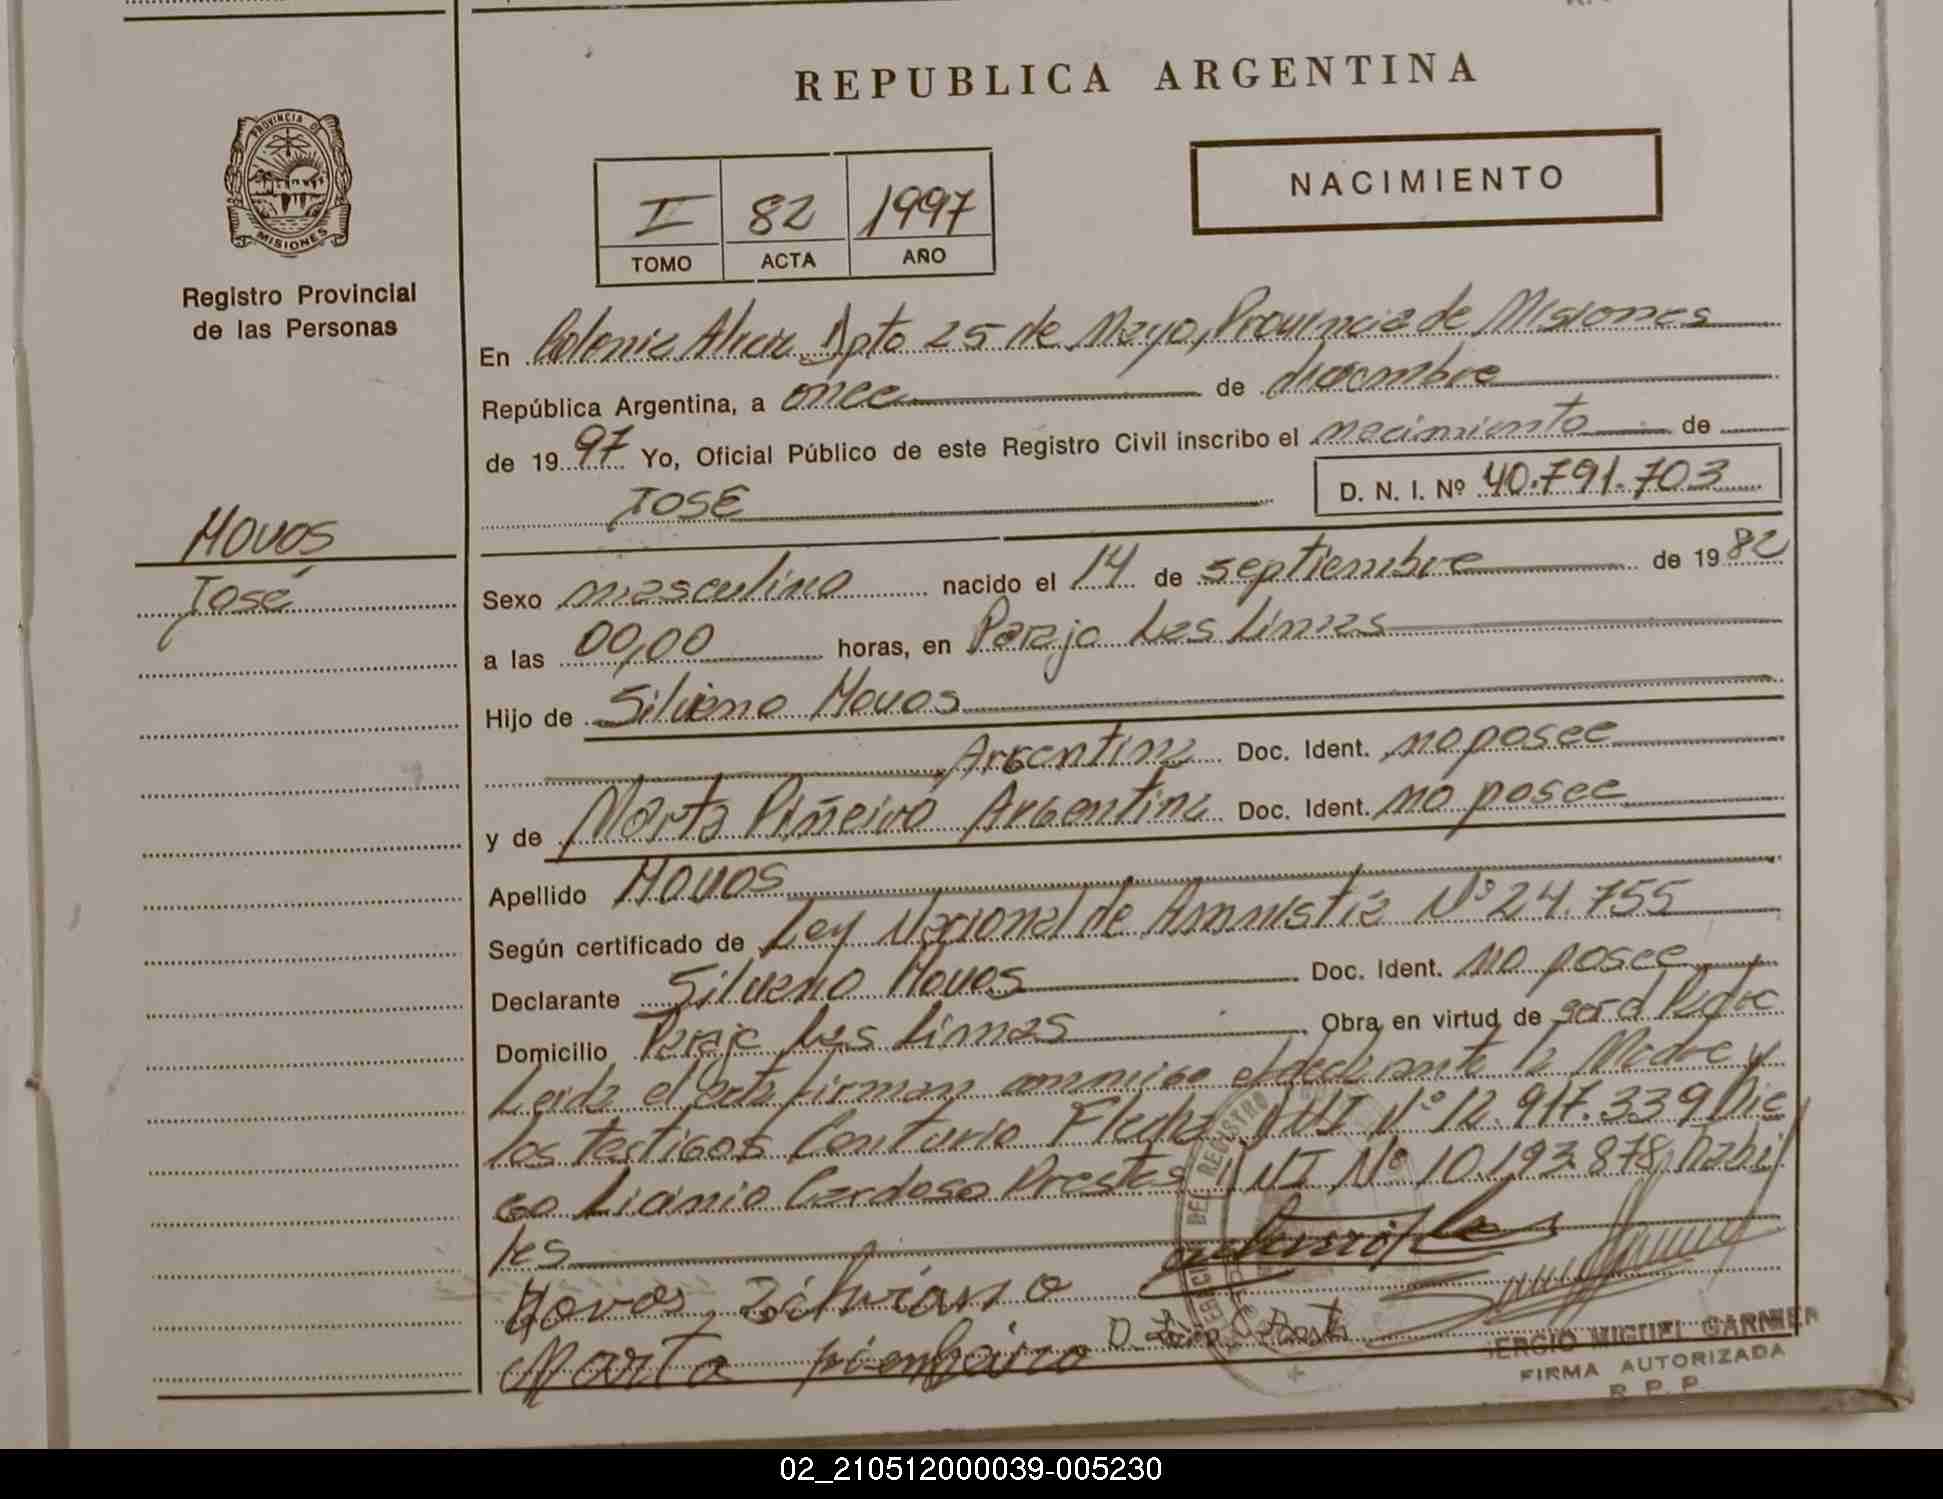 REPUBLICA ARGENTINA
PROVINCIA DE
MISIONES
Registro Provincial
de las Personas
NACIMIENTO
I 82 1997
TOMO ACTA AÑO
En Colonia Alvear Dpto 25 de Mayo, Provincia de Misiones
República Argentina, a once de diciembre
de 1997 Yo, Oficial Público de este Registro Civil inscribo el nacimiento de
JOSE D. N. I. Nº 40.791.703
HOVOS
José
Sexo masculino nacido el 14 de septiembre de 1982
a las 00,00 horas, en Paraje Las Limas
Hijo de Silvano Hovos
Argentina Doc. Ident. no posee
y de Marta Piñeiro Argentina Doc. Ident. no posee
Apellido HOVOS
Según certificado de Ley Nacional de Amnistia Nº 24.755
Declarante Silvano Hovos Doc. Ident. no posee
Domicilio Paraje Las Limas Obra en virtud de ser el Padre
Leida el acta firman conmigo el declarante la Madre y
los testigos Centurio Fleck DNI Nº 12.917.339 Die
go Licinio Cardoso Prestes DNI Nº 10.193.878, habi
les
Hovos Silviano
Marta pienheiro
SERGIO MIGUEL GARNIER
FIRMA AUTORIZADA
R. P. P.
02_210512000039-005230